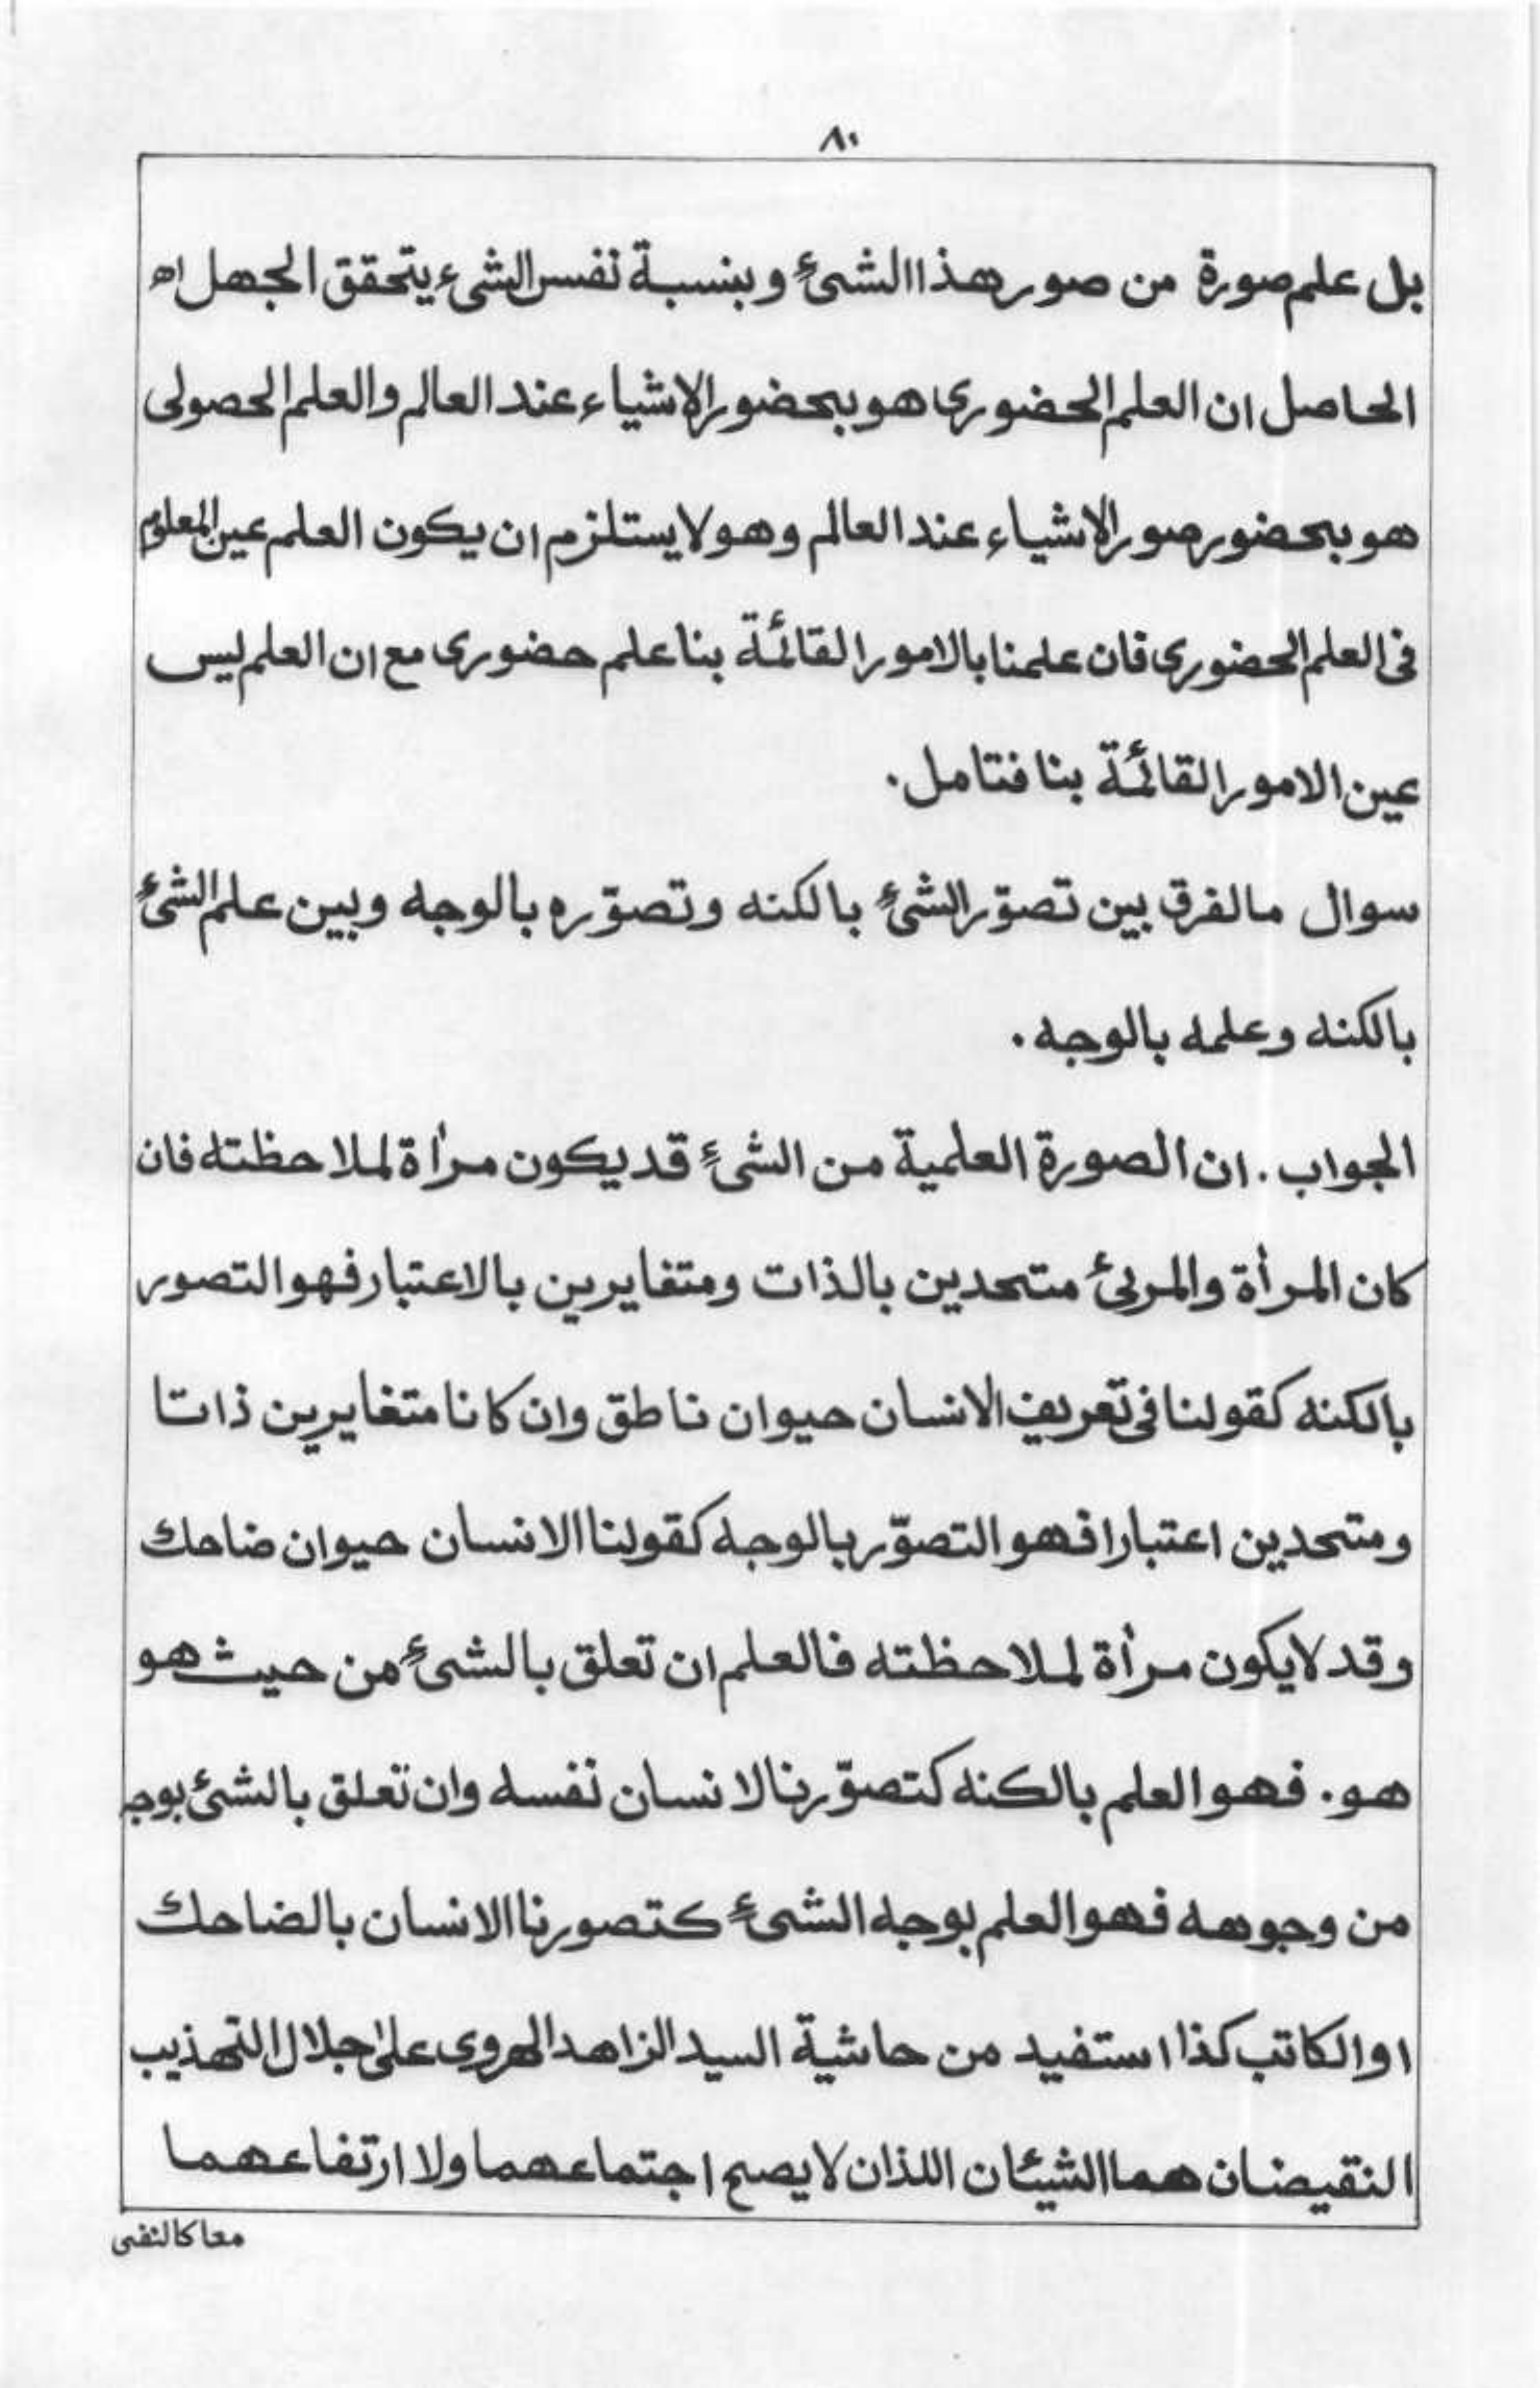 ٨٠
بل علم صورة من صور هذا الشئ وبنسبة نفس الشىء يتحقق الجهل اه
الحاصل ان العلم الحضورى هو بحضور الاشياء عند العالم والعلم الحصولى
هو بحضور صور الاشياء عند العالم وهو لا يستلزم ان يكون العلم عين المعلوم
فى العلم الحضورى فان علمنا بالامور القائمة بنا علم حضورى مع ان العلم ليس
عين الامور القائمة بنا فتامل.
سوال مالفرق بين تصوّر الشئ بالكنه وتصوّره بالوجه وبين علم الشئ
بالكنه وعلمه بالوجه.
الجواب. ان الصورة العلمية من الشئ قد يكون مرأة لملاحظته فان
كان المرأة والمرئ متحدين بالذات ومتغايرين بالاعتبار فهو التصور
بالكنه كقولنا فى تعريف الانسان حيوان ناطق وان كانا متغايرين ذاتا
ومتحدين اعتبارا فهو التصوّر بالوجه كقولنا الانسان حيوان ضاحك
وقد لا يكون مرأة لملاحظته فالعلم ان تعلق بالشئ من حيث هو
هو. فهو العلم بالكنه كتصوّرنا لانسان نفسه وان تعلق بالشئ بوجه
من وجوهه فهو العلم بوجه الشئ كتصورنا الانسان بالضاحك
او الكاتب كذا استفيد من حاشية السيد الزاهد الهروى على جلال التهذيب
النقيضان هما الشيئان اللذان لا يصح اجتماعهما ولا ارتفاعهما
معا كالنفى